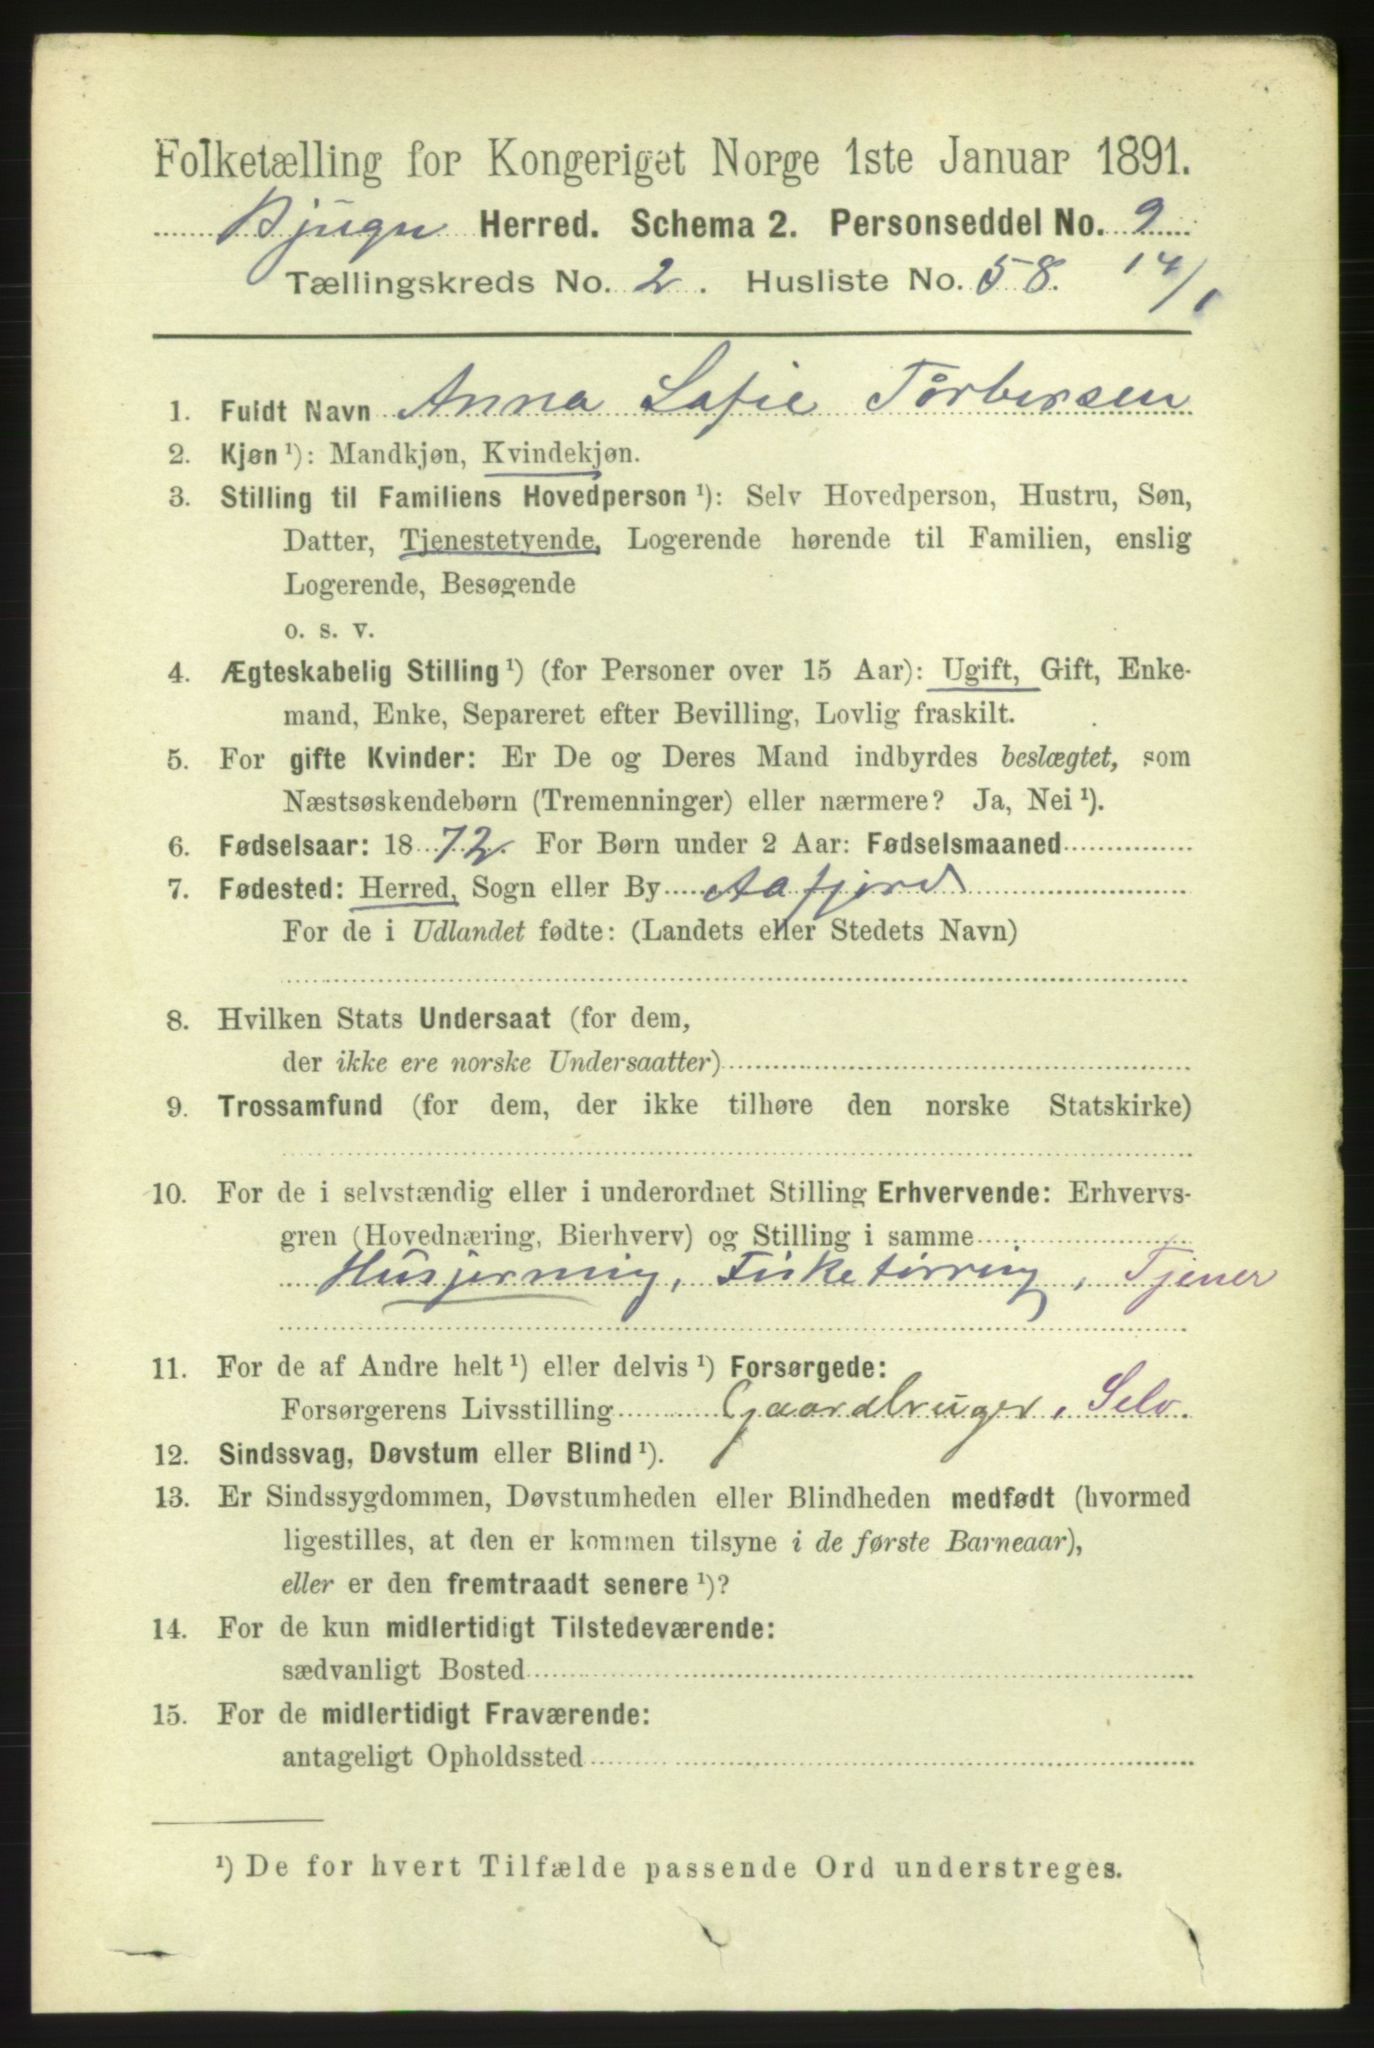 Folketælling for Kongeriget Norge 1ste Januar 1891.
Bjugn Herred. Schema 2. Personseddel No. 9
Tællingskreds No. 2. Husliste No. 58. 14/1
1. Fuldt Navn Anna Sofie Tørbersen
2. Kjøn ¹): Mandkjøn, Kvindekjøn.
3. Stilling til Familiens Hovedperson ¹): Selv Hovedperson, Hustru, Søn,
Datter, Tjenestetyende, Logerende hørende til Familien, enslig
Logerende, Besøgende
o. s. v.
4. Ægteskabelig Stilling ¹) (for Personer over 15 Aar): Ugift, Gift, Enke-
mand, Enke, Separeret efter Bevilling, Lovlig fraskilt.
5. For gifte Kvinder: Er De og Deres Mand indbyrdes beslægtet, som
Næstsøskendebørn (Tremenninger) eller nærmere? Ja, Nei ¹).
6. Fødselsaar: 1872. For Børn under 2 Aar: Fødselsmaaned
7. Fødested: Herred, Sogn eller By Aafjord
For de i Udlandet fødte: (Landets eller Stedets Navn)
8. Hvilken Stats Undersaat (for dem,
der ikke ere norske Undersaatter)
9. Trossamfund (for dem, der ikke tilhøre den norske Statskirke)
10. For de i selvstændig eller i underordnet Stilling Erhvervende: Erhvervs-
gren (Hovednæring, Bierhverv) og Stilling i samme
Husjerning, Fisketørring, Tjener
11. For de af Andre helt ¹) eller delvis ¹) Forsørgede:
Forsørgerens Livsstilling Gaardbruger, Selv.
12. Sindssvag, Døvstum eller Blind ¹).
13. Er Sindssygdommen, Døvstumheden eller Blindheden medfødt (hvormed
ligestilles, at den er kommen tilsyne i de første Barneaar),
eller er den fremtraadt senere ¹)?
14. For de kun midlertidigt Tilstedeværende:
sædvanligt Bosted
15. For de midlertidigt Fraværende:
antageligt Opholdssted
¹) De for hvert Tilfælde passende Ord understreges.